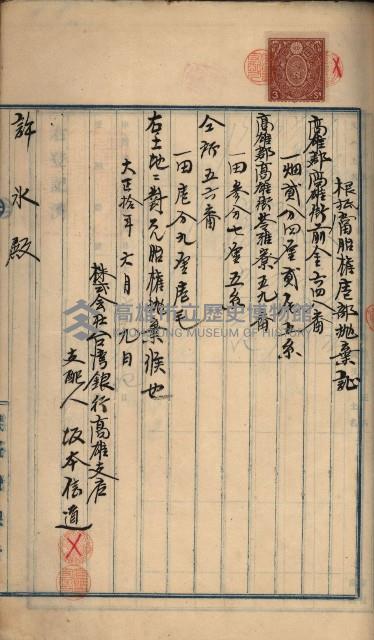 根抵當胎權壱部抛棄証
高雄郡高雄街前金六四八番
一畑貳分四厘貳毛五糸
高雄郡高雄街苓雅寮五九番
一田参分七厘五糸
仝所五六番
一田壱分九厘壱毛
右土地ニ對スル胎權抛棄候也
大正拾年六月 九日
株式会社台湾銀行高雄支店
支配人 坂本信道
許氷殿
高雄市立歷史博物館
KAOHSIUNG MUSEUM OF HISTORY